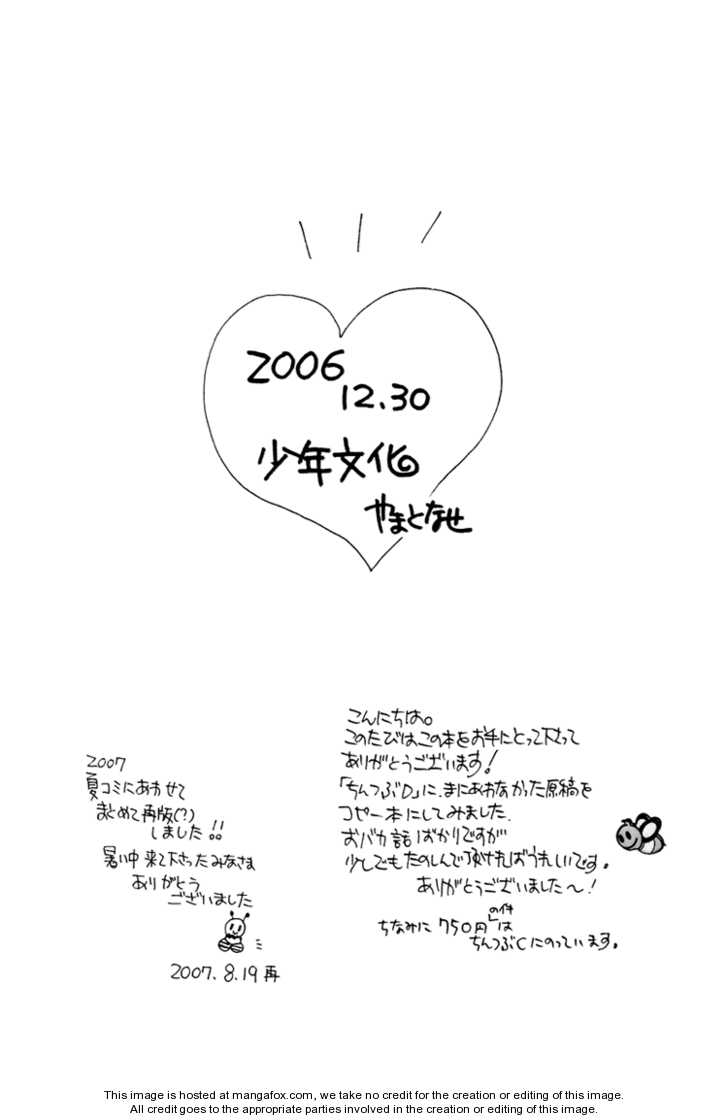 2006
12.30
少年文化
やまとなせ
こんにちは。
このたびはこの本をお手にとって下さって
ありがとうございます!
「ちんつぶD」に、まにあわなかった原稿を
コピー本にしてみました.
おバカ話ばかりですが
少しでもたのしんで頂ければうれしいです。
ありがとうございました〜!
ちなみに 750円 は
ちんつぶCにのっています。
2007
夏コミにあわせて
まとめて再版(?)
しました!!
暑い中来て下さったみなさま
ありがとう
ございました
2007.8.19 再
This image is hosted at mangafox.com, we take no credit for the creation or editing of this image.
All credit goes to the appropriate parties involved in the creation or editing of this image.